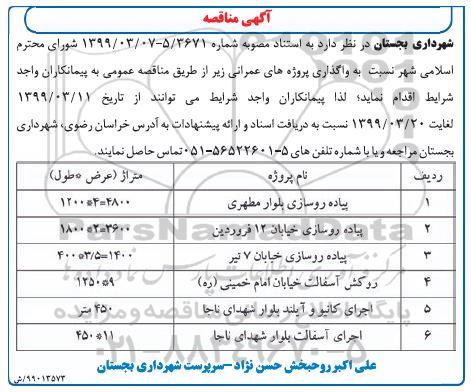 آگهی مناقصه
شهرداری بجستان در نظر دارد به استناد مصوبه شماره ۵/۳۶۷۱-۱۳۹۹/۰۳/۰۷ شورای محترم
اسلامی شهر نسبت به واگذاری پروژه های عمرانی زیر از طریق مناقصه عمومی به پیمانکاران واجد
شرایط اقدام نماید؛ لذا پیمانکاران واجد شرایط می توانند از تاریخ ۱۳۹۹/۰۳/۱۱
لغایت ۱۳۹۹/۰۳/۲۰ نسبت به دریافت اسناد و ارائه پیشنهادات به آدرس خراسان رضوی، شهرداری
بجستان مراجعه و یا با شماره تلفن های ۵-۰۵۱-۵۶۵۲۲۶۰۱تماس حاصل نمایند.
ردیف نام پروژه متراژ (عرض *طول)
۱ پیاده روسازی بلوار مطهری ۴۸۰۰=۴*۱۲۰۰
۲ پیاده روسازی خیابان ۱۲ فروردین ۳۶۰۰=۲*۱۸۰۰
۳ پیاده روسازی خیابان ۷ تیر ۱۴۰۰=۳/۵*۴۰۰
۴ روکش آسفالت خیابان امام خمینی (ره) ۹*۱۲۵۰
۵ اجرای کانیو و آیلند بلوار شهدای ناجا ۴۵۰ متر
۶ اجرای آسفالت بلوار شهدای ناجا ۱۱*۴۵۰
علی اکبر روحبخش حسن نژاد -سرپرست شهرداری بجستان
۹۹۰۱۳۵۷۳/ش
ParsNamadData
پایگاه اطلاع رسانی مناقصه و مزایده
۰۲۱-۸۸۳۴۹۶۷۰-۵